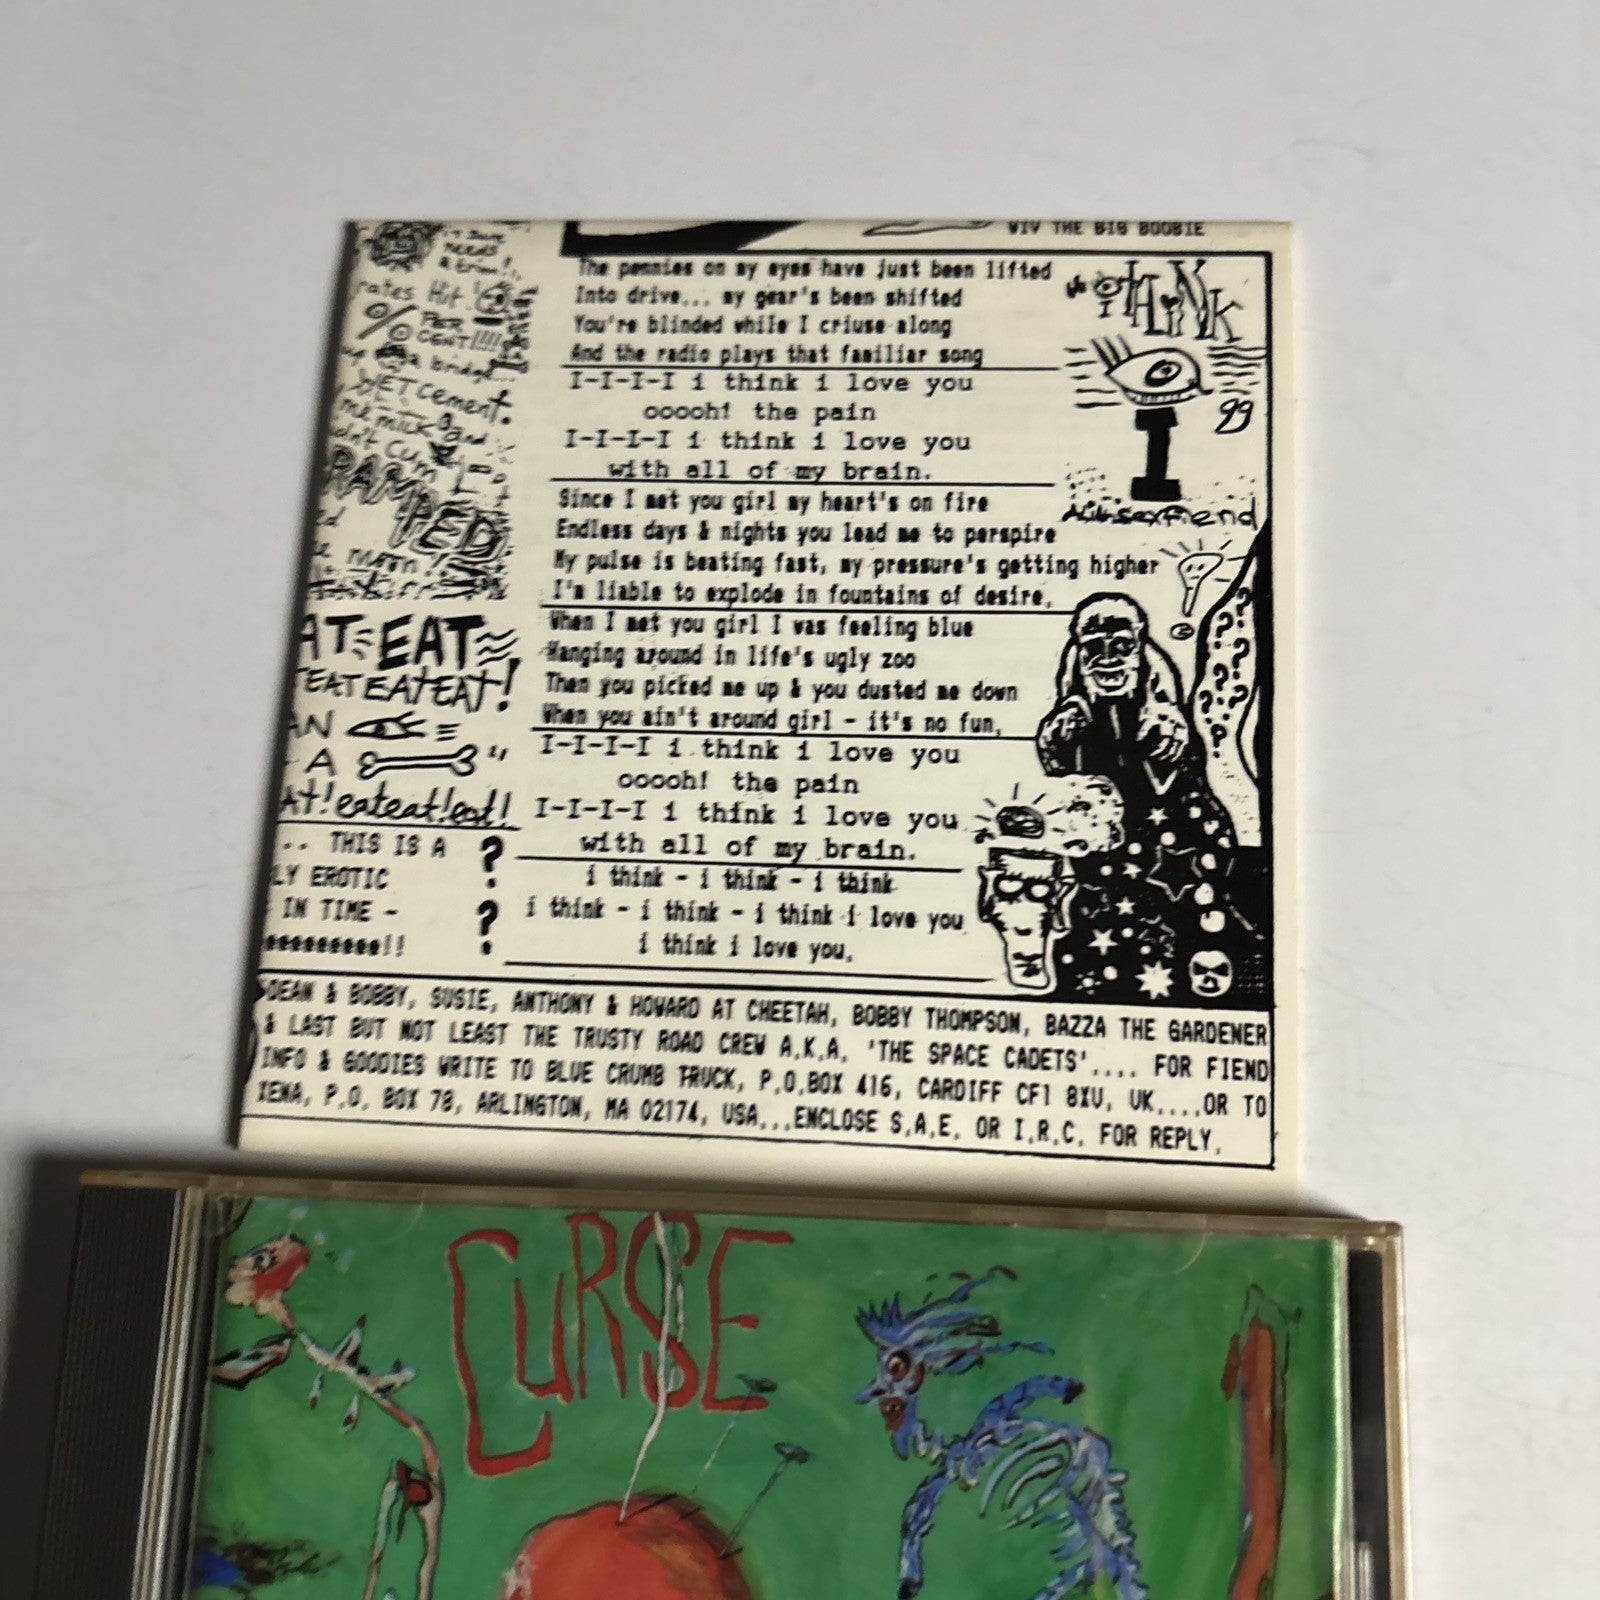 WIV THE BIG BOOBIE
The pennies on my eyes have just been lifted
Into drive... my gear's been shifted
You're blinded while I criuse along
And the radio plays that familiar song
I-I-I-I i think i love you
ooooh! the pain
I-I-I-I i think i love you
with all of my brain.
Since I met you girl my heart's on fire
Endless days & nights you lead me to perspire
My pulse is beating fast, my pressure's getting higher
I'm liable to explode in fountains of desire.
When I met you girl I was feeling blue
Hanging around in life's ugly zoo
Then you picked me up & you dusted me down
When you ain't around girl - it's no fun.
I-I-I-I i think i love you
ooooh! the pain
I-I-I-I i think i love you
with all of my brain.
i think - i think - i think
i think - i think - i think i love you
i think i love you.
I THiNK
I
99
Aliensexfiend
needs
a trim!
rates Hit
% PER
CENT!!!!
a bridge...
WET cement.
me milk and
dn't Cum
RAMPED
moon!
AT EAT
TEATEATEAT!
AN
A
AT! eateat!eat!
.. THIS IS A ?
LY EROTIC
IN TIME - ?
eeeeeeeeee!!
DEAN & BOBBY, SUSIE, ANTHONY & HOWARD AT CHEETAH, BOBBY THOMPSON, BAZZA THE GARDENER
& LAST BUT NOT LEAST THE TRUSTY ROAD CREW A.K.A. 'THE SPACE CADETS'.... FOR FIEND
INFO & GOODIES WRITE TO BLUE CRUMB TRUCK, P.O.BOX 416, CARDIFF CF1 8XU, UK....OR TO
XENA, P.O. BOX 78, ARLINGTON, MA 02174, USA...ENCLOSE S.A.E. OR I.R.C. FOR REPLY.
CURSE